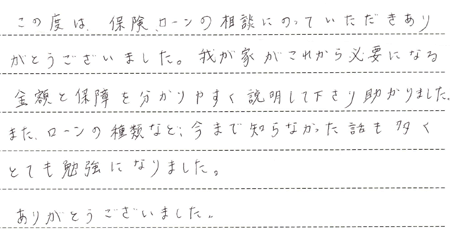 この度は、保険、ローンの相談にのっていただきあり
がとうございました。我が家がこれから必要になる
金額と保障を分かりやすく説明して下さり助かりました。
また、ローンの種類など、今まで知らなかった話も多く
とても勉強になりました。
ありがとうございました。